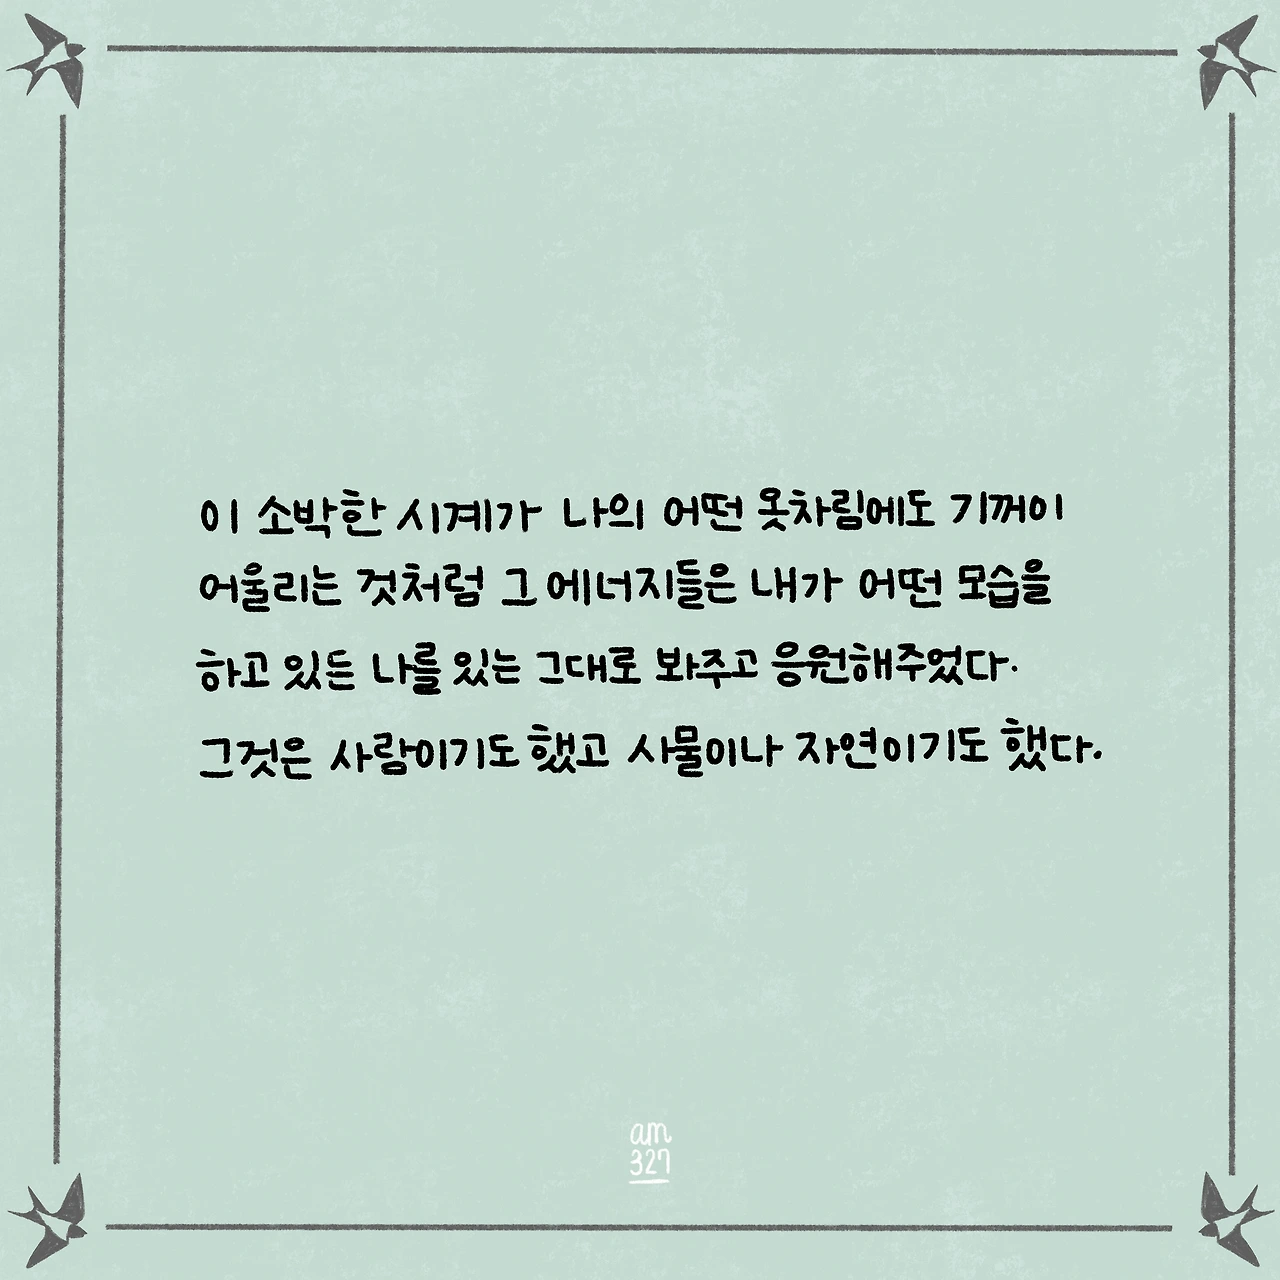 이 소박한 시계가 나의 어떤 옷차림에도 기꺼이
어울리는 것처럼 그 에너지들은 내가 어떤 모습을
하고 있든 나를 있는 그대로 봐주고 응원해주었다.
그것은 사람이기도 했고 사물이나 자연이기도 했다.
am
327